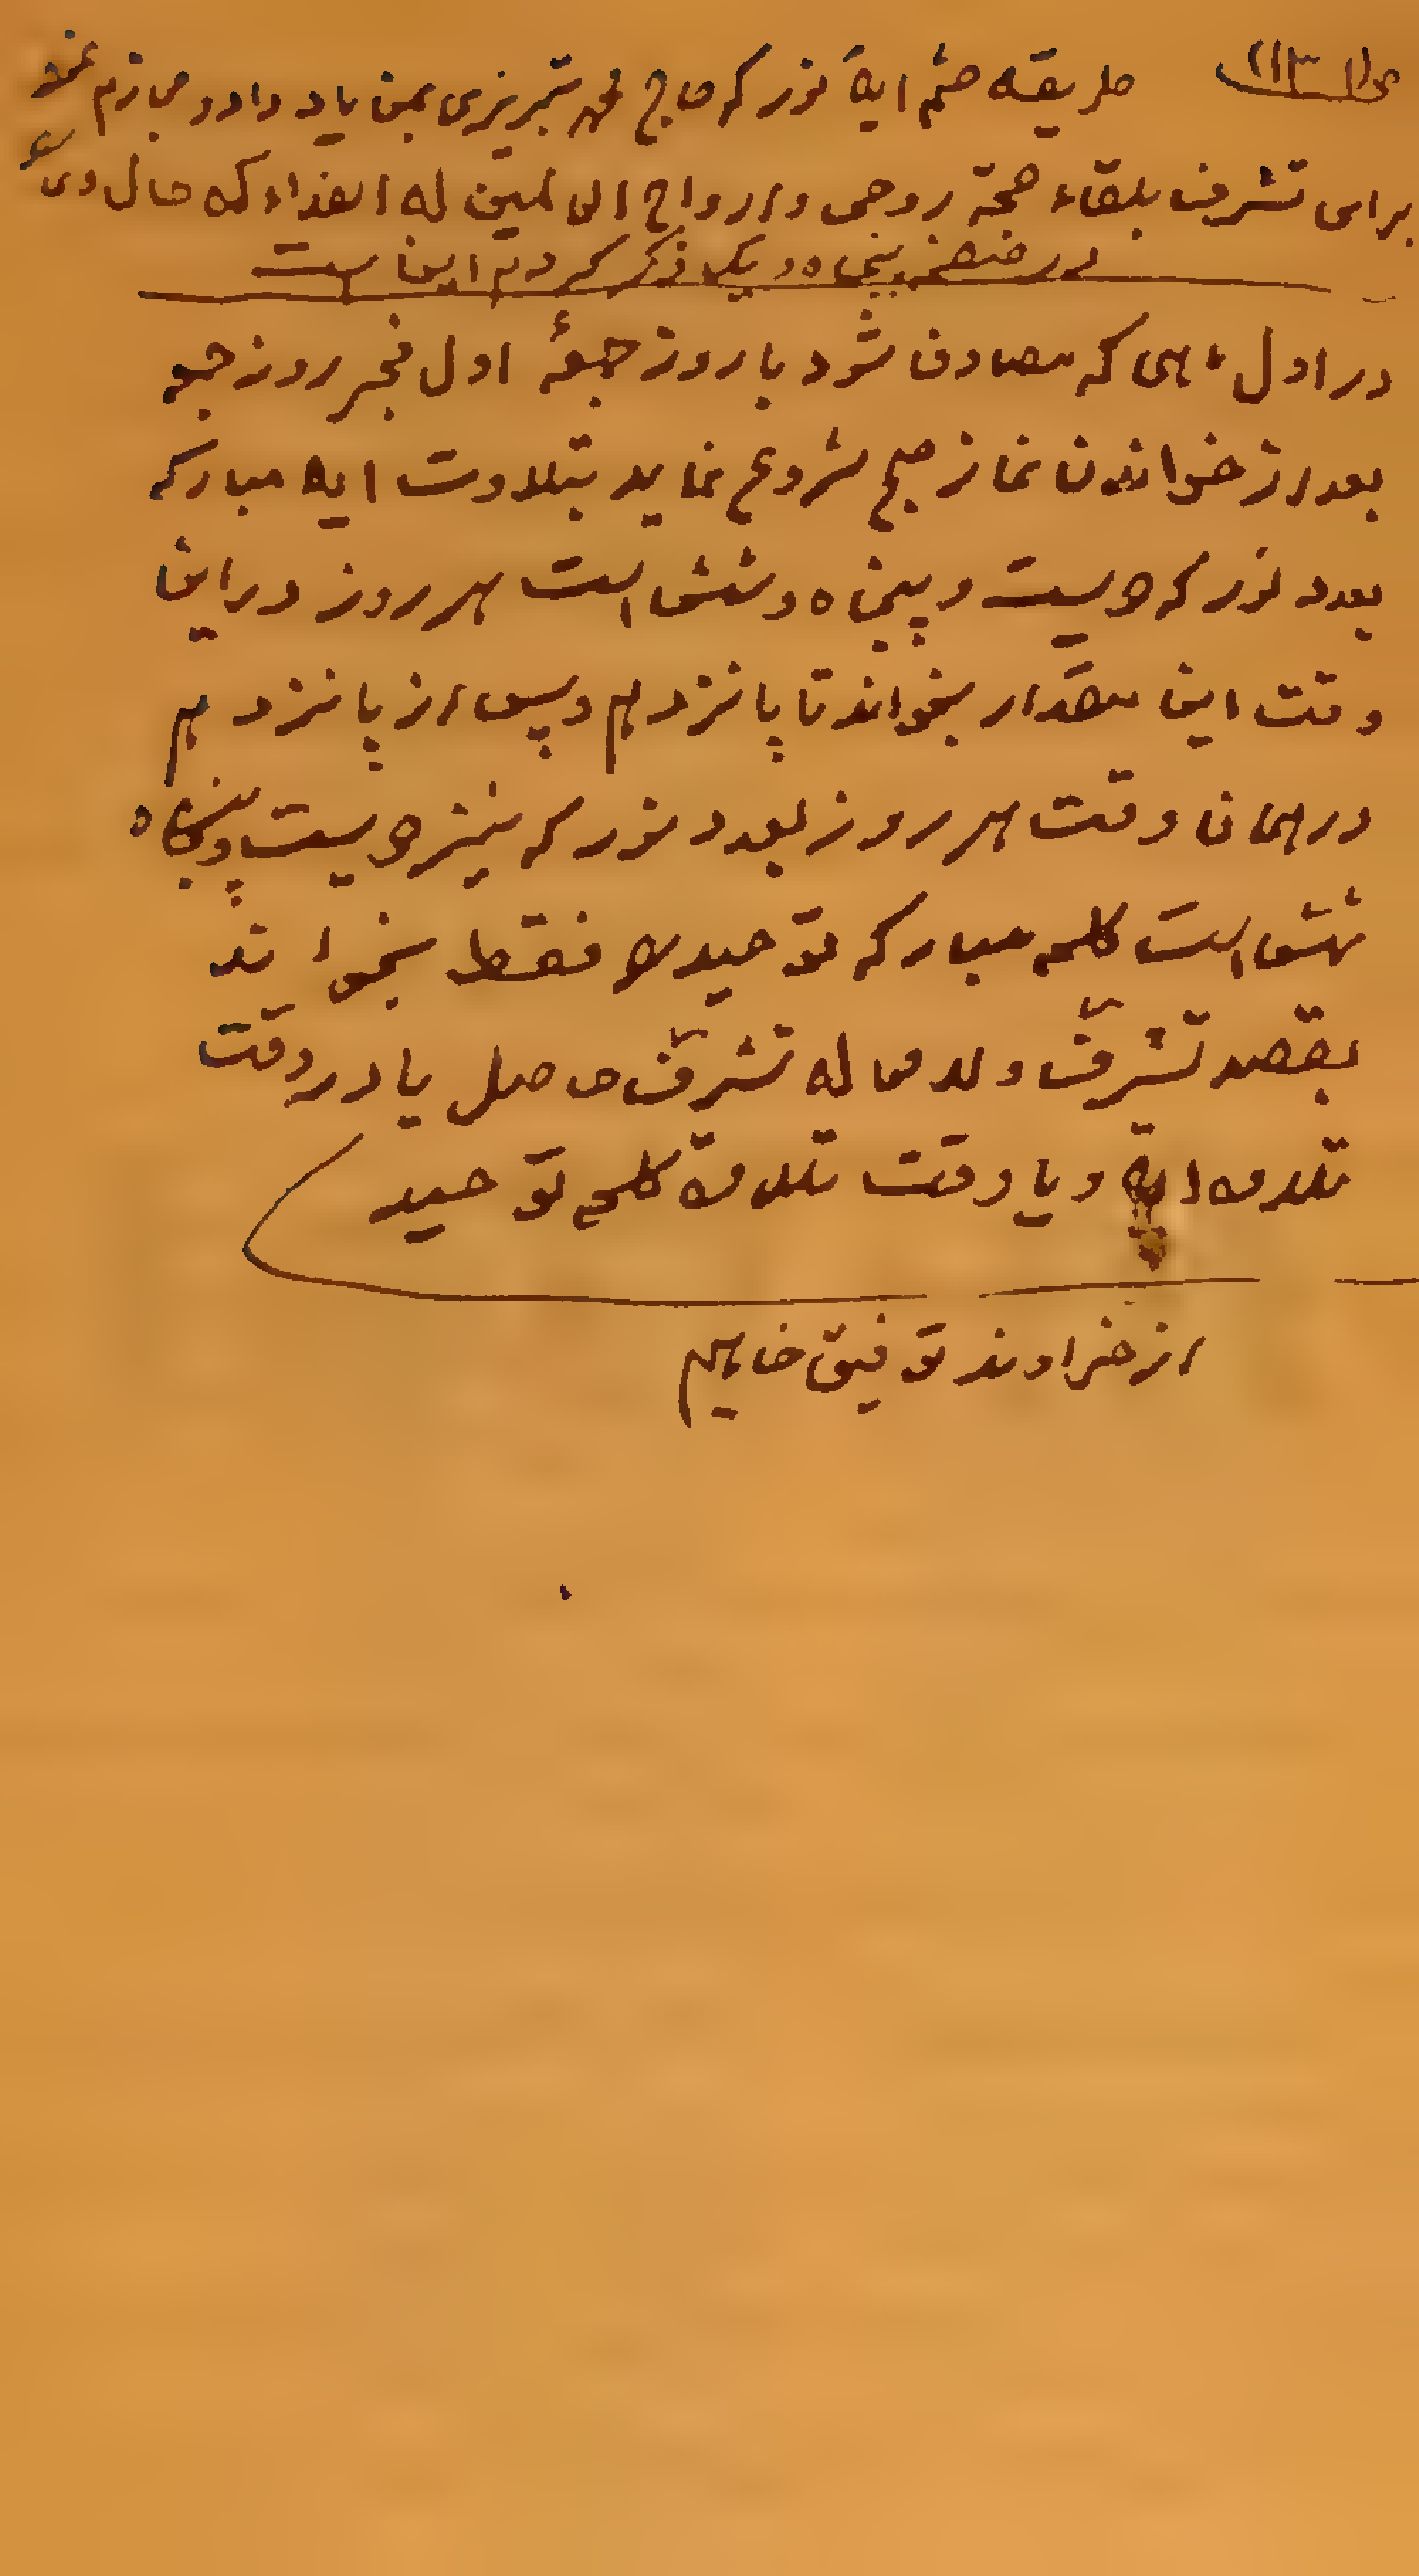 طریقه ختم ایه نور که حاج محمد تبریزی بمن یاد داد و مجازم نمود
برای تشرف بلقاء حجة روحی و ارواح العالمین له الفداء که حال وی
در صفحه پنجاه و یک ذکر کردم این است
در اول ماهی که مصادف شود با روز جمعهٔ اول فجر روز جمعه
بعد از خواندن نماز صبح شروع نماید بتلاوت ایه مبارکه
بعدد نور که دویست و پنجاه و شش است هر روز در این
وقت این مقدار بخواند تا پانزدهم و پس از پانزدهم
در همان وقت هر روز بعدد نور که نیز دویست و پنجاه
شش است کلمه مبارکه توحید لا فقط بخواند
بقصد تشرّف و لا محاله تشرّف حاصل یا در وقت
تلاوه ایه و یا وقت تلاوة کلمه توحید
از خداوند توفیق خاهیم